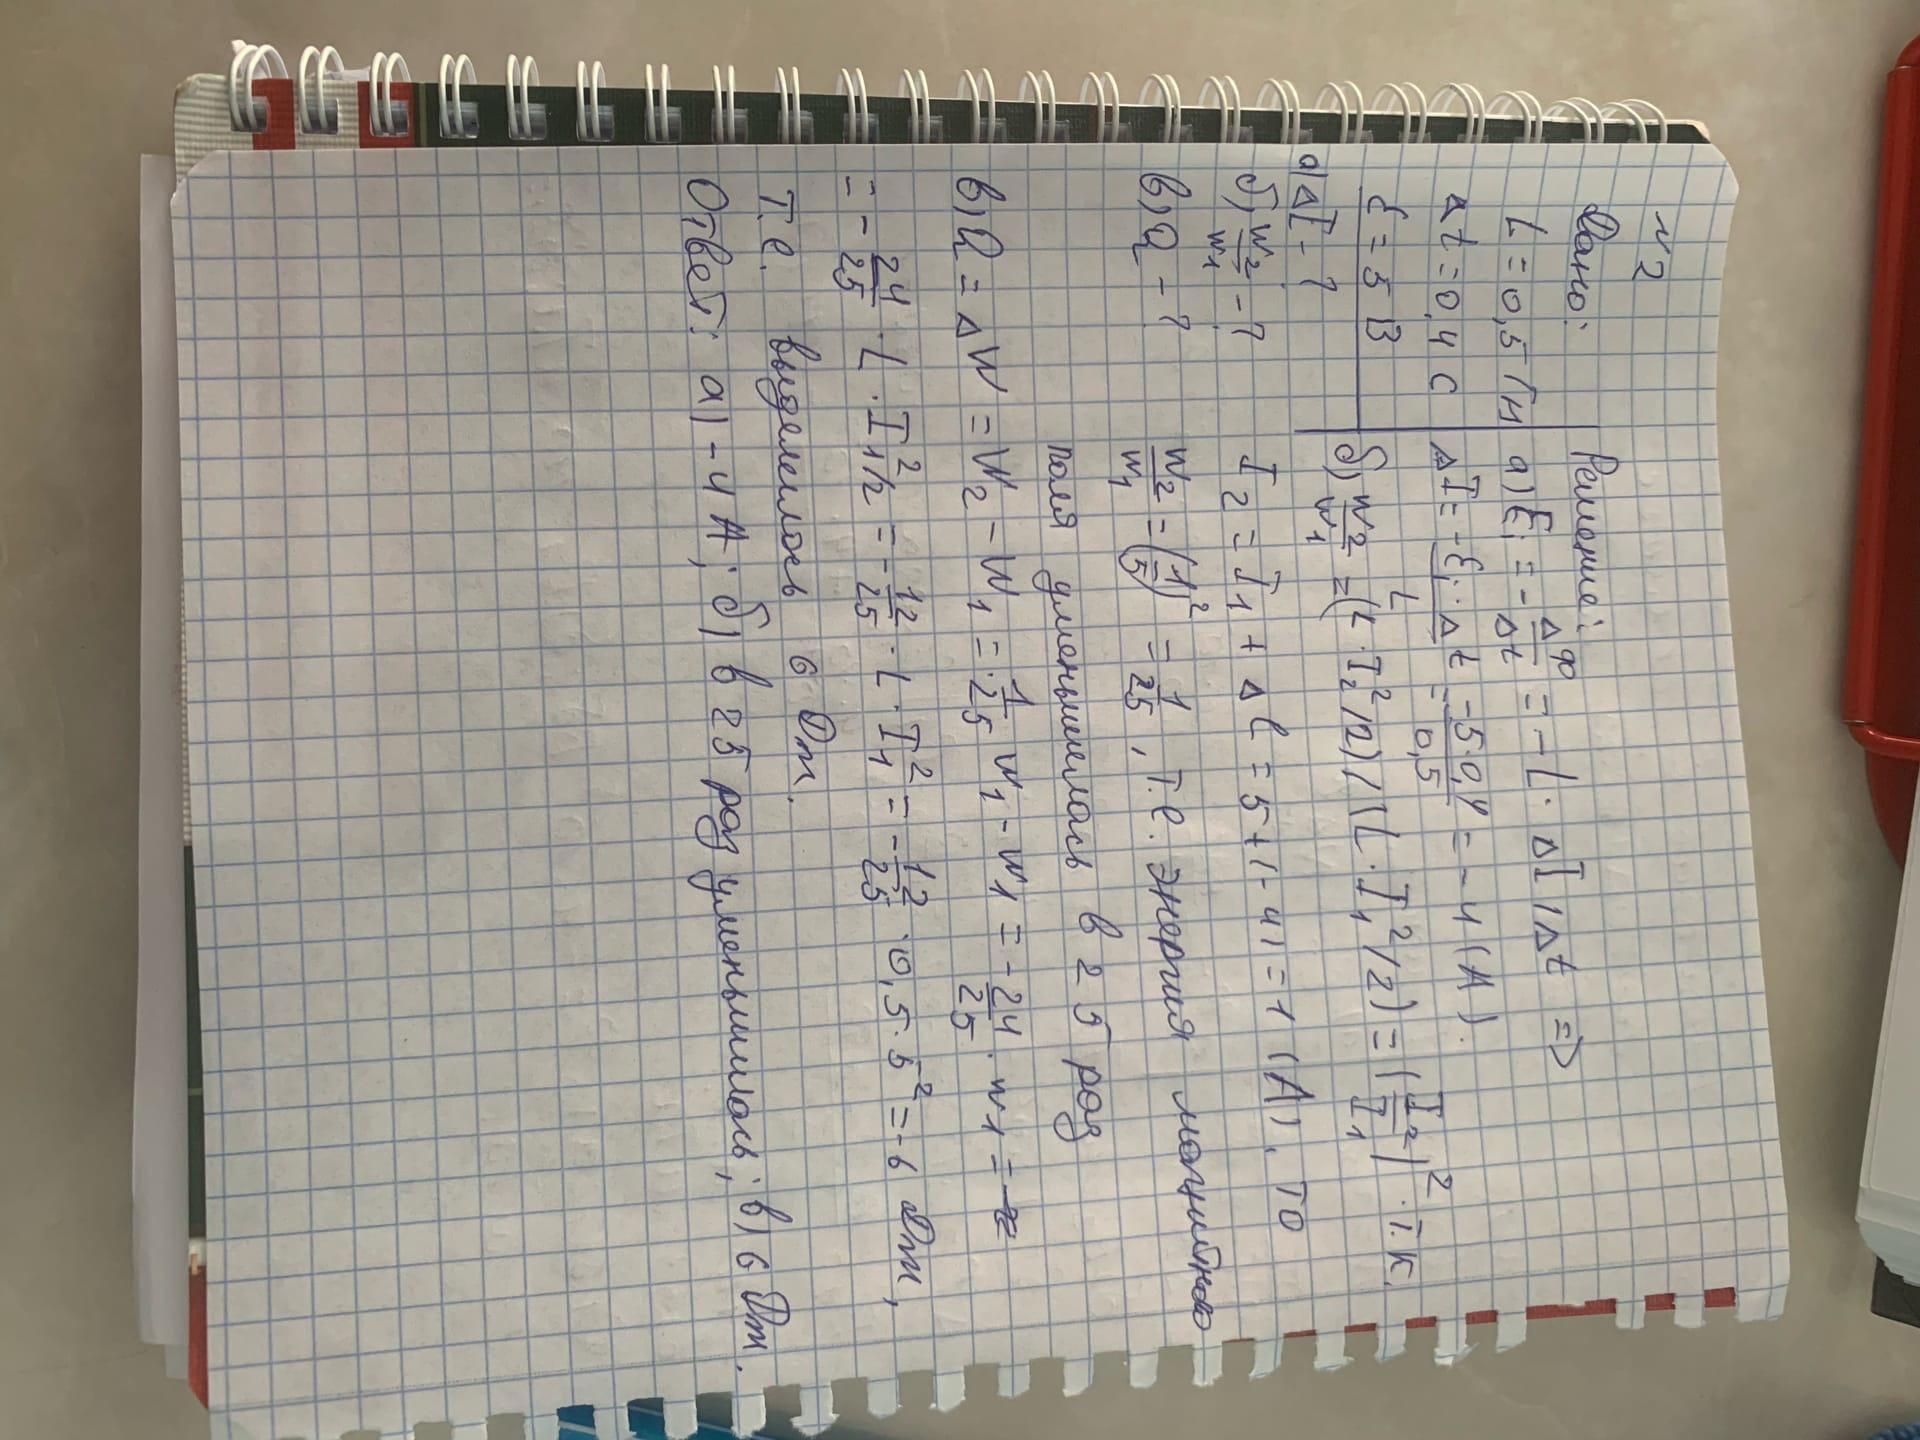 №2
Дано:
L = 0,5 Гн
Δt = 0,4 с
ℰ = 5 В
а) ΔI - ?
б) W2/W1 - ?
в) Q - ?
Решение:
а) Ei = - ΔФ/Δt = - L · ΔI/Δt ⇒
ΔI = -Ei·Δt/L = -5·0,4/0,5 = -4 (А).
б) W2/W1 = (L · I2²/2)/(L · I1²/2) = (I2/I1)². Т.к.
I2 = I1 + Δl = 5 + (-4) = 1 (А), то
W2/W1 = (1/5)² = 1/25, т.е. энергия магнитного
поля уменьшилась в 25 раз
в) Q = ΔW = W2 - W1 = 1/25 W1 - W1 = - 24/25 · W1 =
= - 24/25 · L · I1²/2 = - 12/25 · L · I1² = - 12/25 · 0,5 · 5² = -6 Дж,
т.е. выделилось 6 Дж.
Ответ: а) -4 А; б) в 25 раз уменьшилась; в) 6 Дж.